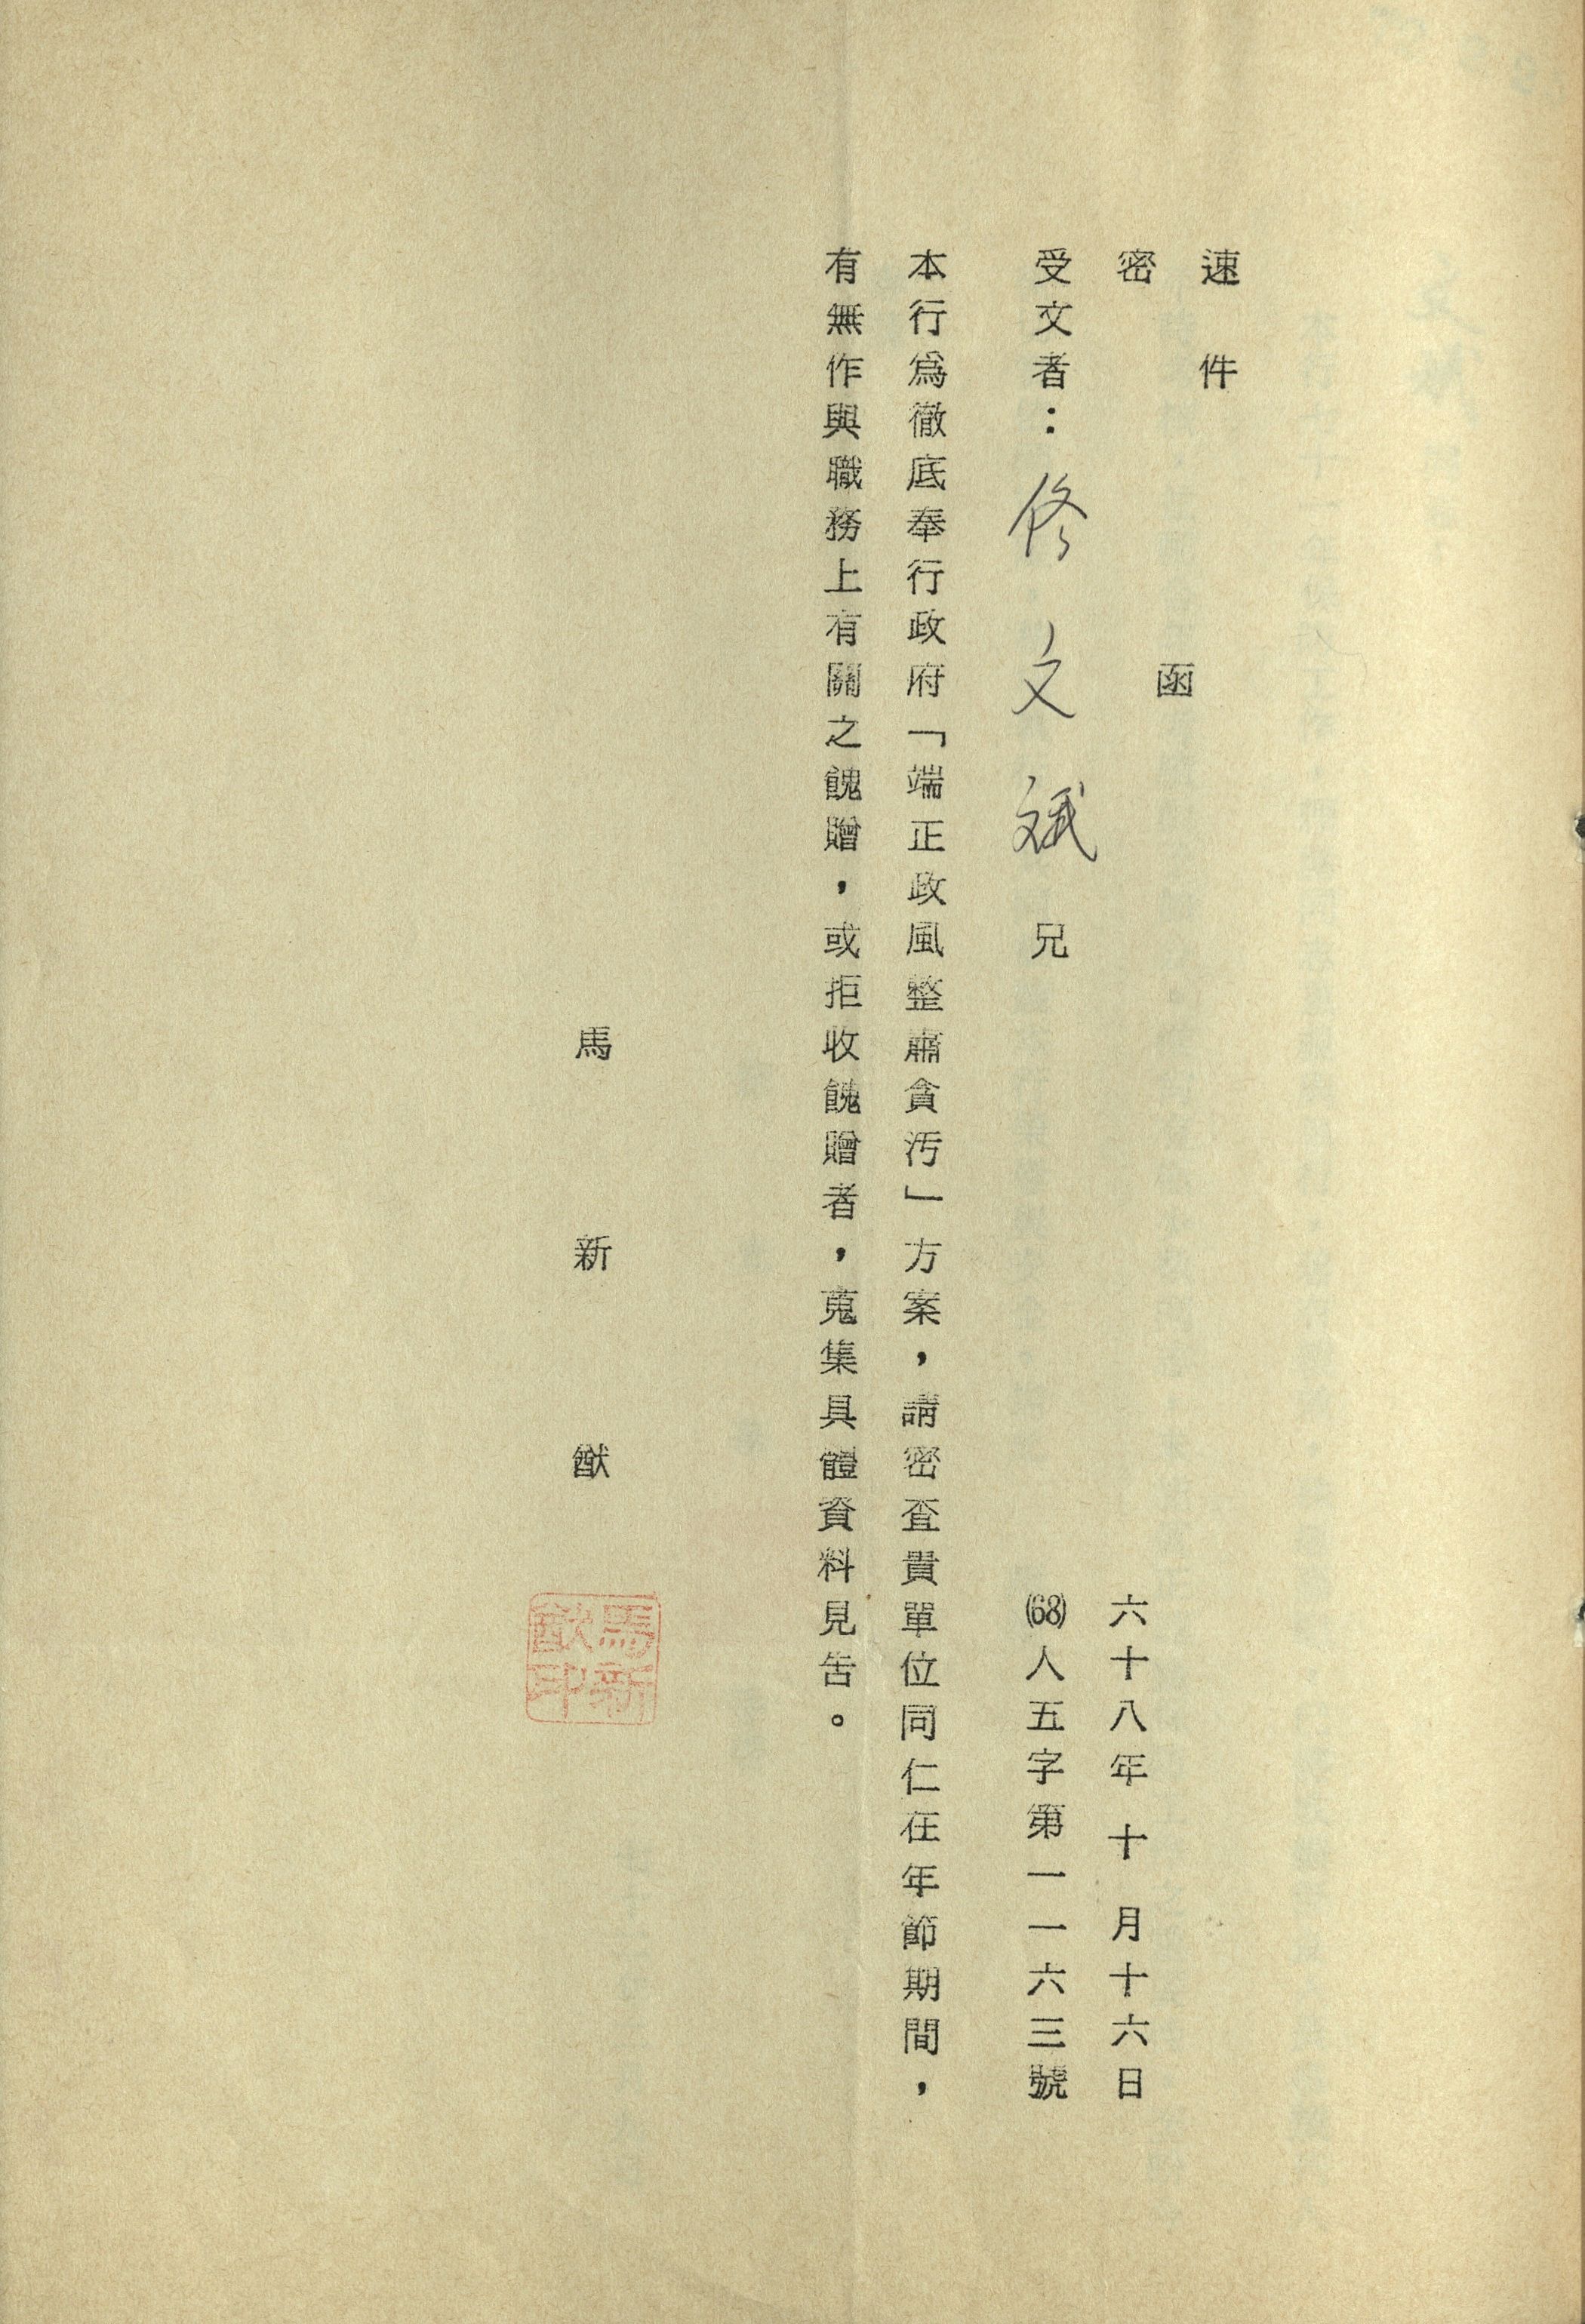 速件
函
密
六十八年十月十六日
受文者：佟文斌兄
(68)人五字第一一六三號
本行為徹底奉行政府「端正政風整肅貪汚」方案，請密查貴單位同仁在年節期間，
有無作與職務上有關之餽贈，或拒收餽贈者，蒐集具體資料見告。
馬新猷
馬新猷印